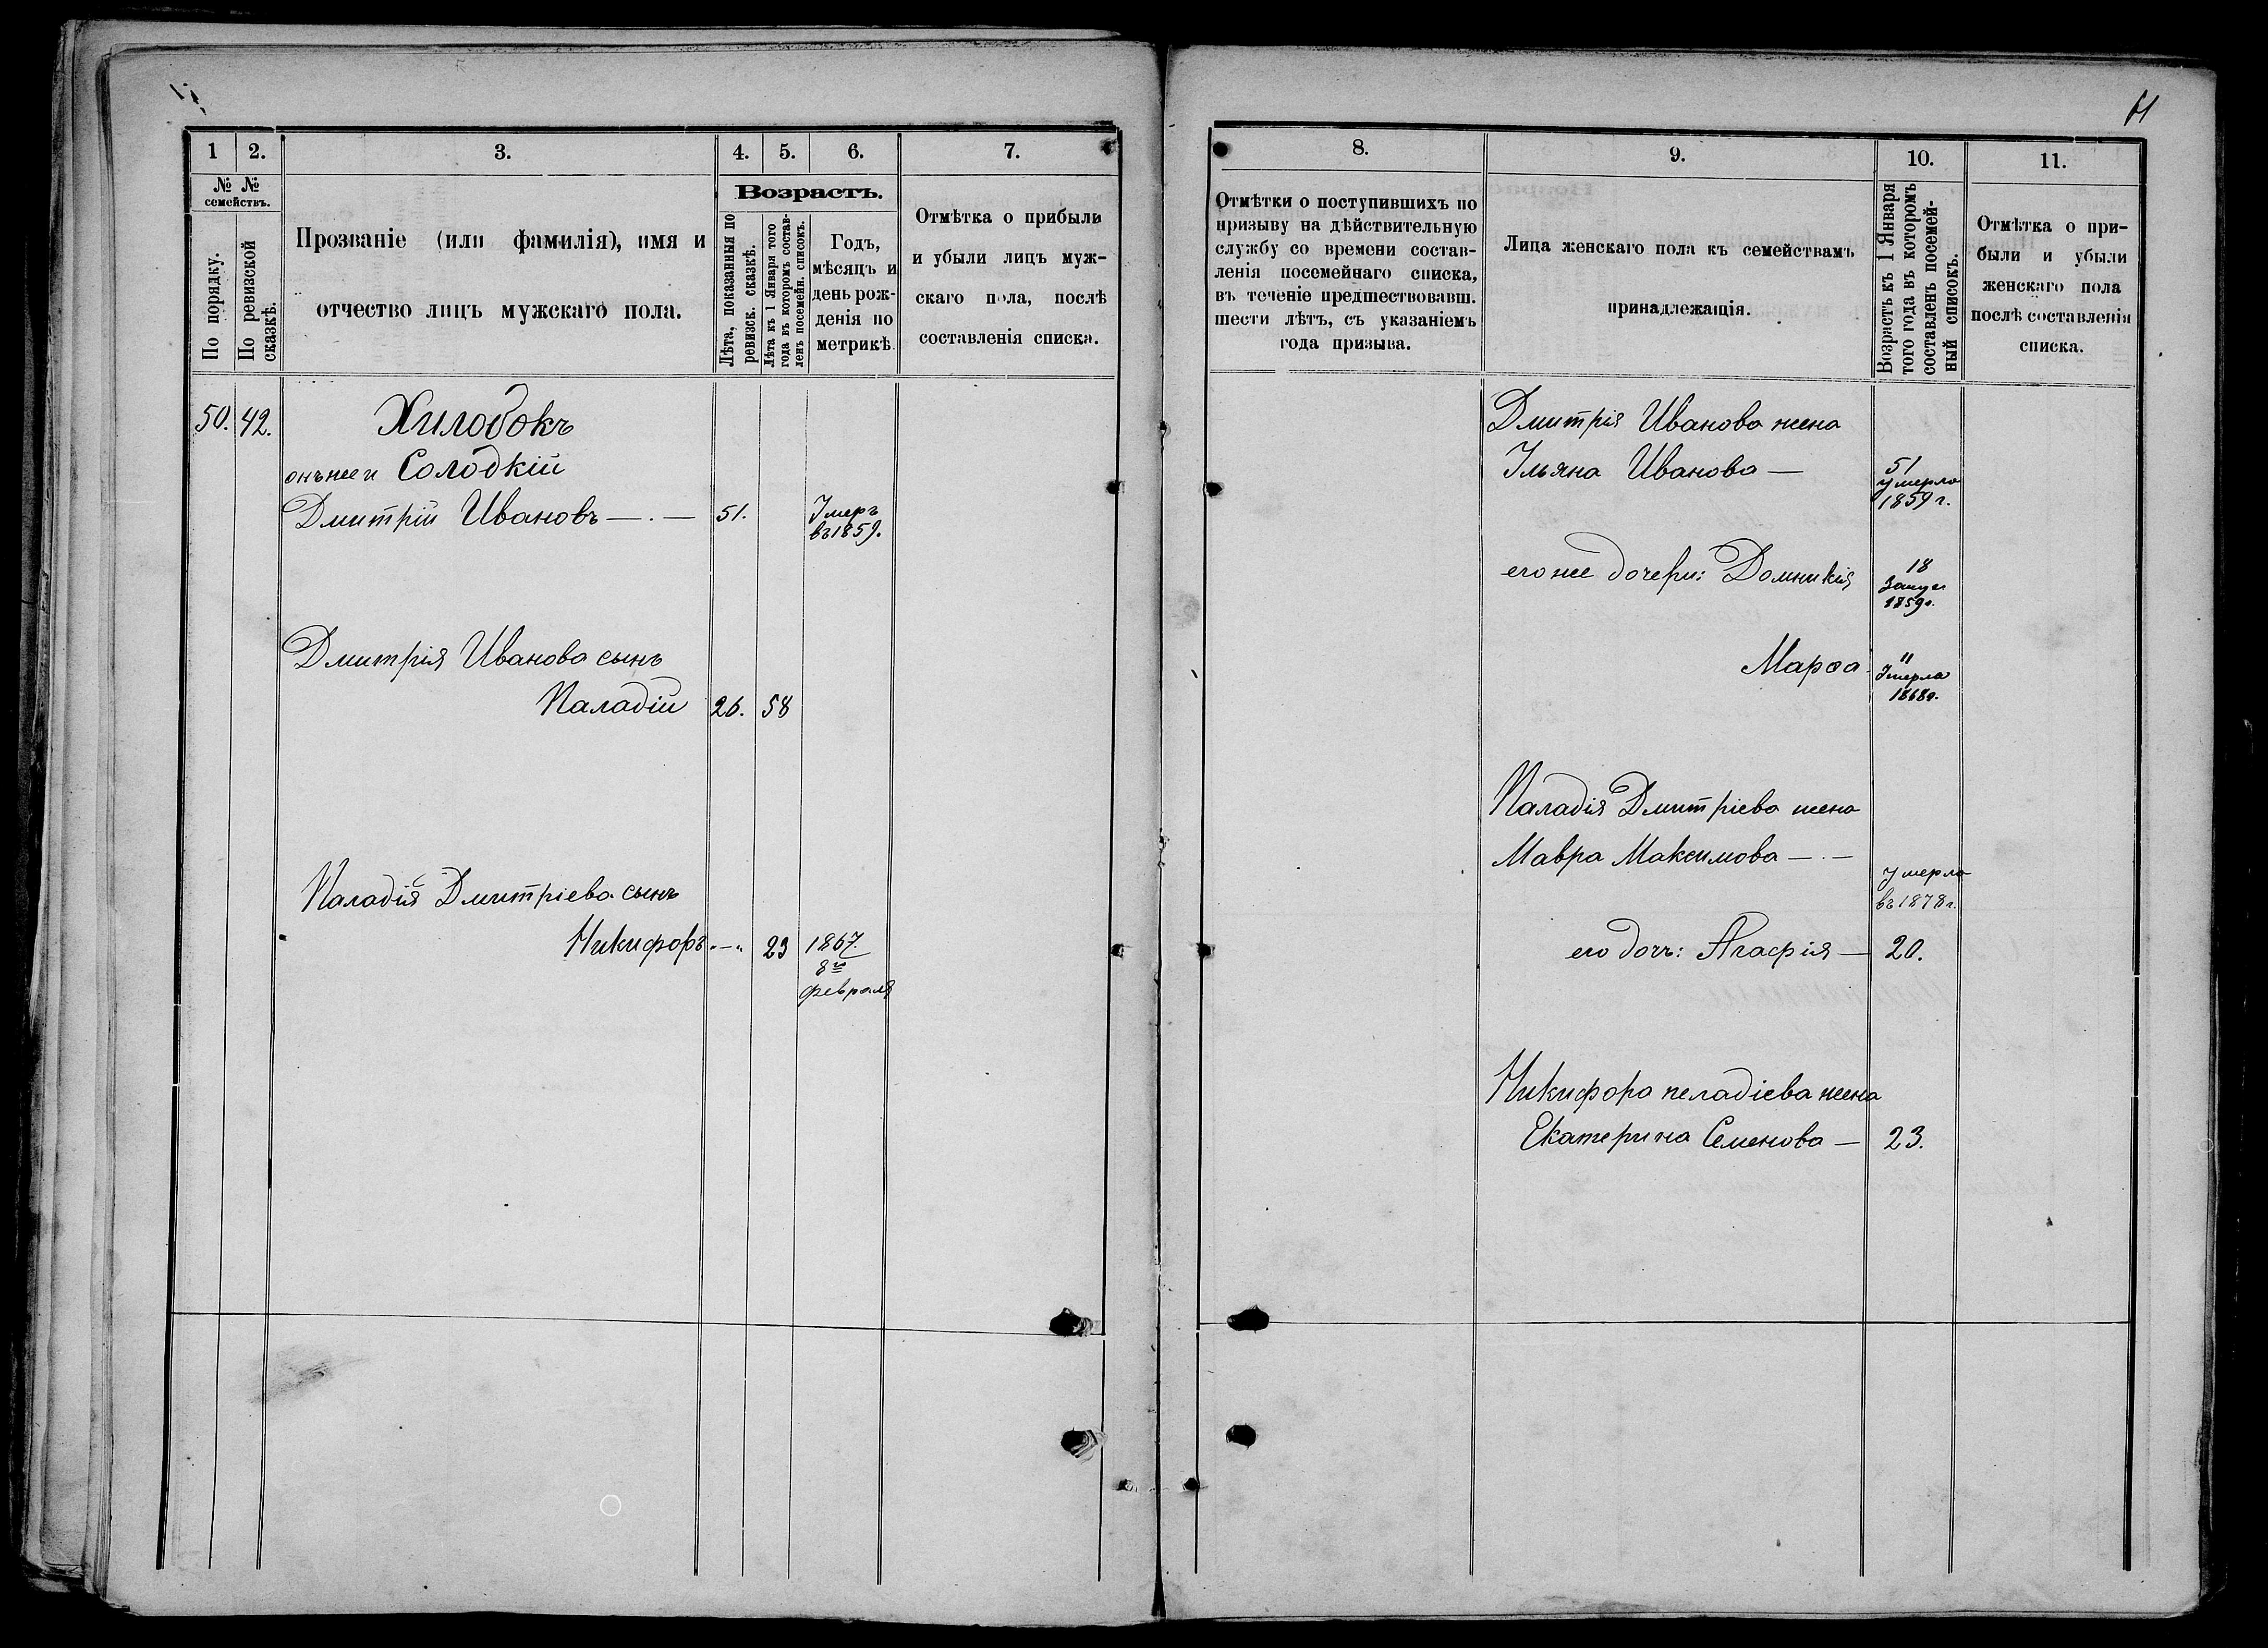 1
2.
3.
4.
5.
6.
7.
№ №
семействъ.
По порядку.
По ревизской
сказкѣ.
Прозваніе (или фамилія), имя и
отчество лицъ мужскаго пола.
Возрастъ.
Лѣта, показанныя по
ревизск. сказкѣ.
Лѣта къ 1 Января того
года въ которомъ состав-
ленъ посемейн. списокъ.
Годъ,
мѣсяцъ и
день рож-
денія по
метрикѣ.
Отмѣтка о прибыли
и убыли лицъ муж-
скаго пола, послѣ
составленія списка.
50.
42.
Хилобокъ
онъ же и Солодкій
Дмитрій Ивановъ — . — 51.
Умеръ
въ 1859.
Дмитрія Иванова сынъ
Паладій 26. 58
Паладія Дмитріева сынъ
Никифоръ „—„ 23 1867.
8го
февраля
8.
9.
10.
11.
Отмѣтки о поступившихъ по
призыву на дѣйствительную
службу со времени состав-
ленія посемейнаго списка,
въ теченіе предшествовавш.
шести лѣтъ, съ указаніемъ
года призыва.
Лица женскаго пола къ семействамъ
принадлежащія.
Возрастъ къ 1 Января
того года въ которомъ
составленъ посемей-
ный списокъ.
Отмѣтка о при-
были и убыли
женскаго пола
послѣ составленія
списка.
Дмитрія Иванова жена
Ульяна Иванова — 51
Умерла
1859 г.
его же дочери: Домникія 18
Замуж
1859г.
Марѳа 11
Умерла
1868г.
Паладія Дмитріева жена
Мавра Максимова — . —
Умерла
въ 1878г.
его дочь: Агафія — 20.
Никифора пеладіева жена
Екатерина Семенова — 23.